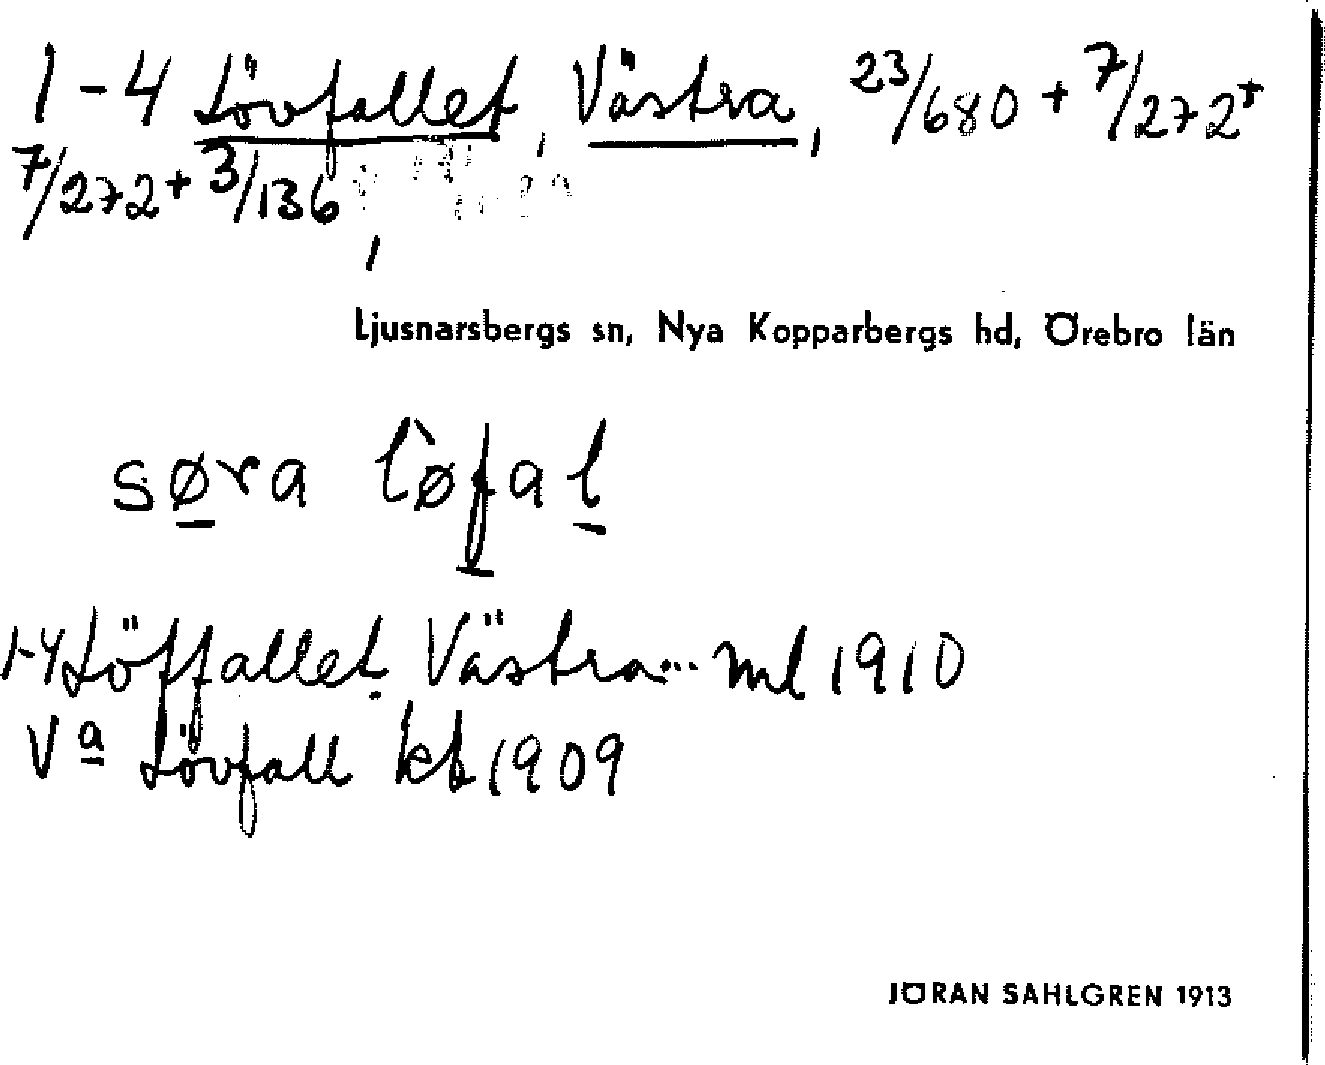 1-4 Lövfallet, Västra, 23/680 + 7/272 +
7/272 + 3/136
,
Ljusnarsbergs sn, Nya Kopparbergs hd, Örebro län
søra l̀øfal
1-4 Löffallet Västra... ml 1910
Va Lövfall kb 1909
JÖRAN SAHLGREN 1913